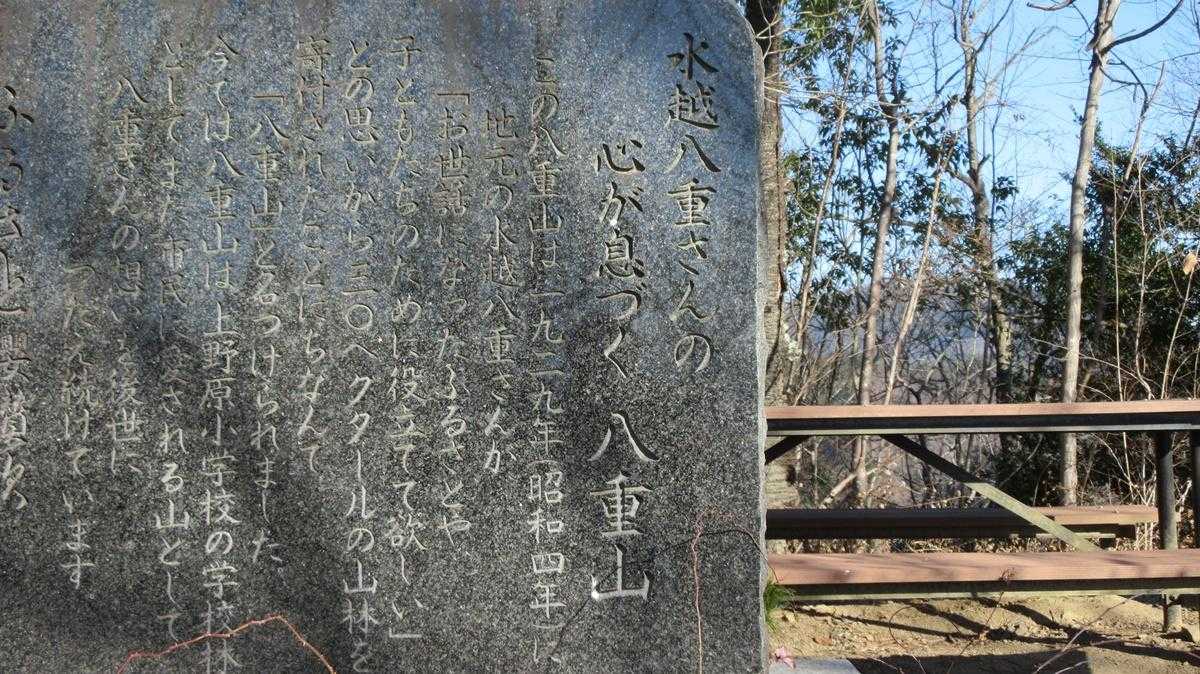 水越八重さんの
心が息づく 八重山
この八重山は一九二九年(昭和四年)に
地元の水越八重さんが
「お世話になったふるさとや
子どもたちのために役立てて欲しい」
との思いから三〇ヘクタールの山林を
寄付されたことにちなんで
「八重山と名づけられました
今では八重山は上野原小学校の学校林
としてまた市民に愛される山として
八重さんの想いを後世に
つたえ続けています
ふるさと